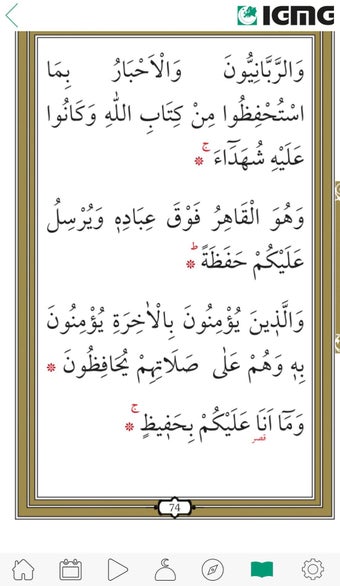 IGMG
وَالرَّبَّانِيُّونَ وَالْاَحْبَارُ بِمَا
اسْتُحْفِظُوا مِنْ كِتَابِ اللّٰهِ وَكَانُوا
عَلَيْهِ شُهَدَٓاءَۚ
وَهُوَ الْقَاهِرُ فَوْقَ عِبَادِه۪ وَيُرْسِلُ
عَلَيْكُمْ حَفَظَةًۜ
وَالَّذ۪ينَ يُؤْمِنُونَ بِالْاٰخِرَةِ يُؤْمِنُونَ
بِه۪ وَهُمْ عَلٰى صَلَاتِهِمْ يُحَافِظُونَ
وَمَٓا اَنَا۬ عَلَيْكُمْ بِحَف۪يظٍۚ
قصر
74